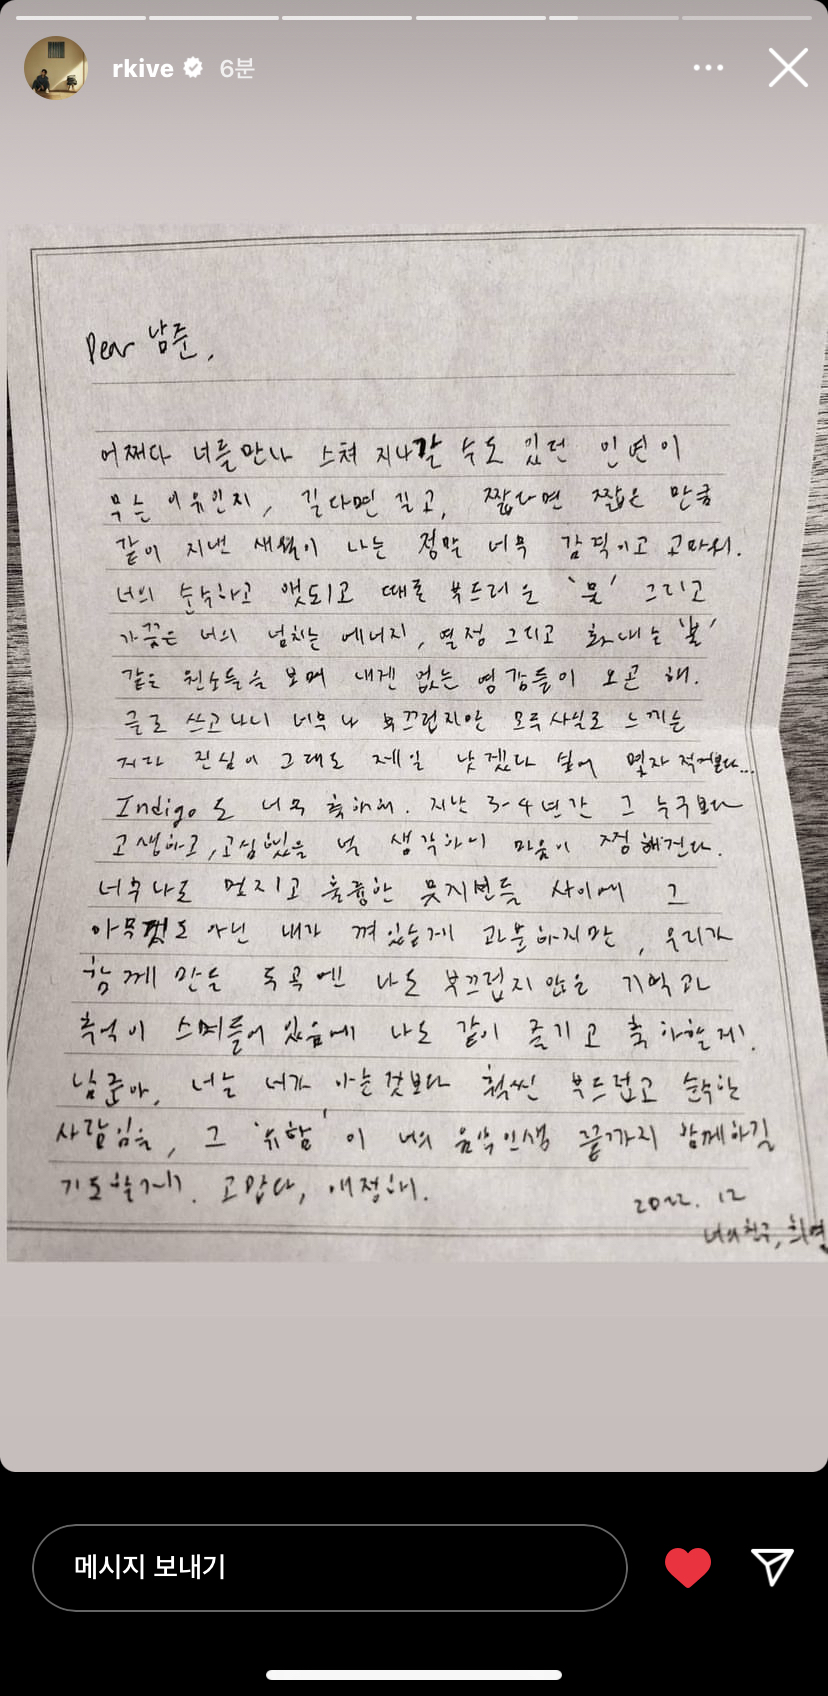 rkive 6분
Dear 남준,
어쩌다 너를 만나 스쳐 지나갈 수도 있던 인연이
무슨 이유인지, 길다면 길고, 짧다면 짧은 만큼
같이 지낸 세월이 나는 정말 너무 감격이고 고마워.
너의 순수하고 앳되고 때론 부드러운 '물' 그리고
가끔은 너의 넘치는 에너지, 열정 그리고 화내는 '불'
같은 원소들을 보며 내겐 없는 영감들이 오곤 해.
글로 쓰고나니 너무나 부끄럽지만 모두 사실로 느끼는
지라 진심이 그래도 제일 낫겠다 싶어 몇자 적어본다...
Indigo도 너무 축하해. 지난 3-4년간 그 누구보다
고생하고, 고심했을 널 생각하니 마음이 찡해진다.
너무나도 멋지고 훌륭한 뮤지션들 사이에 그
아무것도 아닌 내가 껴있는게 과분하지만, 우리가
함께 만든 곡엔 나도 부끄럽지 않은 기억과
추억이 스며들어 있음에 나도 같이 즐기고 축하할게!
남준아, 너는 너가 아는 것보다 훨씬 부드럽고 순수한
사람임을, 그 '유함'이 너의 음악인생 끝까지 함께하길
기도할게. 고맙다, 애정해.
2022. 12
너의 친구,
메시지 보내기